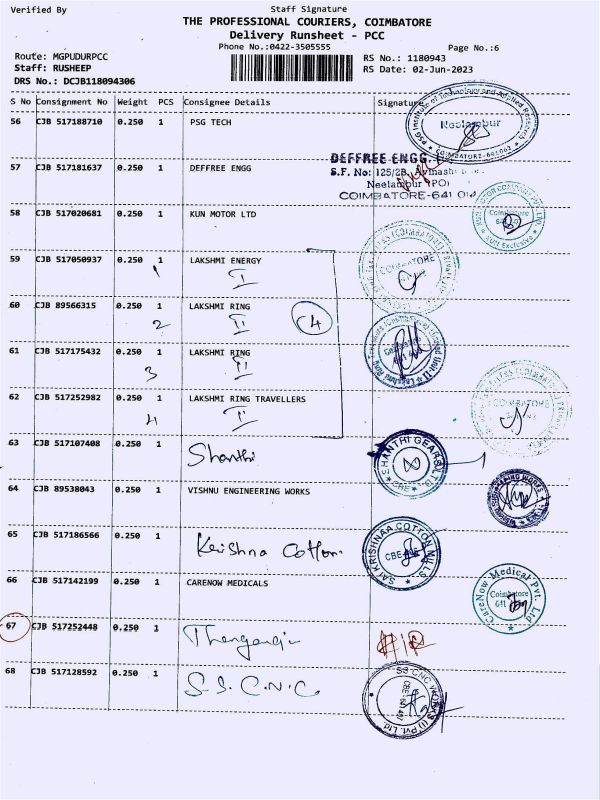 Verified By Staff Signature
THE PROFESSIONAL COURIERS, COIMBATORE
Delivery Runsheet - PCC
Phone No.:0422-3505555 Page No.:6
Route: MGPUDURPCC RS No.: 1180943
Staff: RUSHEEP RS Date: 02-Jun-2023
DRS No.: DCJB118094306
S No Consignment No Weight PCS Consignee Details Signature
56 CJB 517188710 0.250 1 PSG TECH
PSG Institute of Technology and Applied Research
Neelambur
COIMBATORE-641062
57 CJB 517181637 0.250 1 DEFFREE ENGG
DEFFREE ENGG.
S.F. No: 125/2B, Avinashi
Neelambur (PO)
COIMBATORE-641 014
58 CJB 517020681 0.250 1 KUN MOTOR LTD
Coimbatore
KUN Exclusive
59 CJB 517050937 0.250 1 LAKSHMI ENERGY
1 I
COIMBATORE
60 CJB 89566315 0.250 1 LAKSHMI RING
2 II 4
61 CJB 517175432 0.250 1 LAKSHMI RING
3 II
62 CJB 517252982 0.250 1 LAKSHMI RING TRAVELLERS
4 I
COIMBATORE
63 CJB 517107408 0.250 1 Shanthi
SHANTHI GEARS LTD
CBE
64 CJB 89538043 0.250 1 VISHNU ENGINEERING WORKS
65 CJB 517186566 0.250 1 Krishna Cotton
SAI KRISHNAA COTTON MILLS
CBE
66 CJB 517142199 0.250 1 CARENOW MEDICALS
CareNow Medical Pvt. Ltd
Coimbatore
641
67 CJB 517252448 0.250 1
68 CJB 517128592 0.250 1 S.S. C.N.C.
SS CNC WORKS (I) Pvt. Ltd.